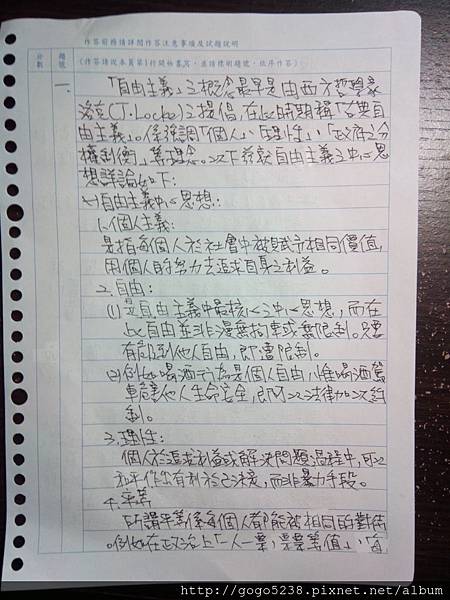 作答前務請詳閱作答注意事項及試題說明
分數
題號
(作答請從本頁第1行開始書寫，並請標明題號，依序作答)
一、
「自由主義」之概念最早是由西方哲學家
洛克(J.Locke)之提倡,在此時期稱「古典自
由主義」。係強調「個人」、「理性」、「政府之分
權制衡」等理念。以下茲就自由主義之中心思
想詳論如下:
(一)自由主義中心思想:
1.個人主義:
是指每個人於社會中被賦予相同價值,
用個人的努力去追求自身之利益。
2.自由:
(1)是自由主義中最核心之中心思想,而在
此自由並非漫無拘束或無限制。只要
有侵到他人自由,即遭限制。
(2)例如喝酒行為是個人自由,惟喝酒駕
車危害他人生命安全,即以法律加以限
制。
3.理性:
個人於追求利益或解決問題過程中,可以
和平作出有利於己決定,而非暴力手段。
4.平等
所謂平等係每個人都能被相同的對待
。例如在政治上「一人一票,票票等值」、「每
http://gogo5238.pixnet.net/album